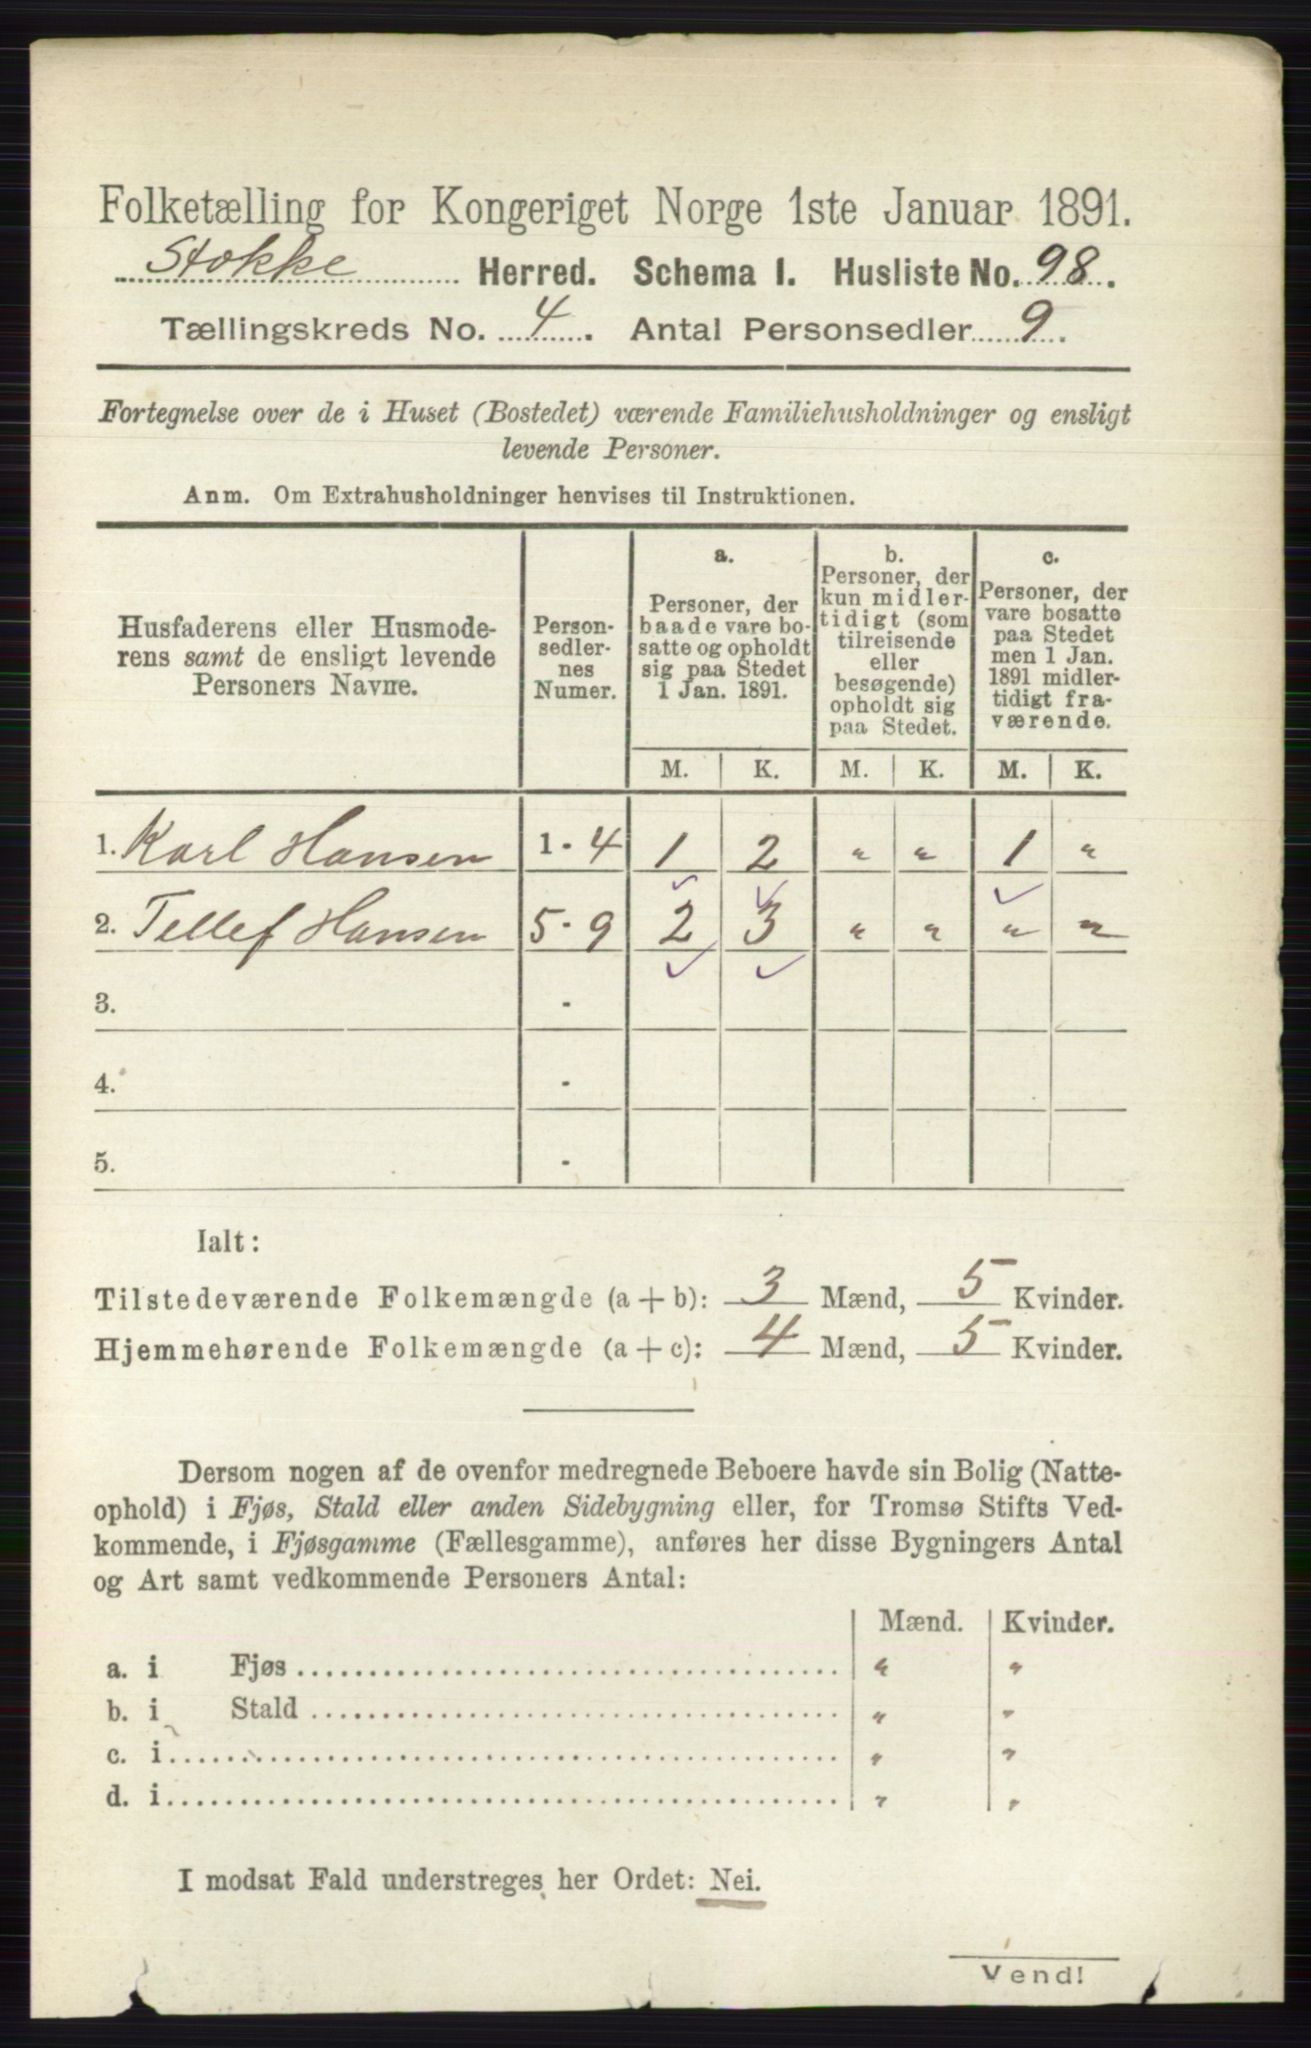 Folketælling for Kongeriget Norge 1ste Januar 1891.
Stokke Herred. Schema I. Husliste No. 98.
Tællingskreds No. 4. Antal Personsedler 9.
Fortegnelse over de i Huset (Bostedet) værende Familiehusholdninger og ensligt
levende Personer.
Anm. Om Extrahusholdninger henvises til Instruktionen.
Husfaderens eller Husmode-
rens samt de ensligt levende
Personers Navne.
Person-
sedler-
nes
Numer.
a.
Personer, der
baade vare bo-
satte og opholdt
sig paa Stedet
1 Jan. 1891.
b.
Personer, der
kun midler-
tidigt (som
tilreisende
eller
besøgende)
opholdt sig
paa Stedet.
c.
Personer, der
vare bosatte
paa Stedet
men 1 Jan.
1891 midler-
tidigt fra-
værende.
M. K. M. K. M. K.
1. Karl Hansen 1 - 4 1 2 " " 1 "
2. Tellef Hansen 5 - 9 2 3 " " " "
3. -
4. -
5. -
Ialt:
Tilstedeværende Folkemængde (a + b): 3 Mænd, 5 Kvinder.
Hjemmehørende Folkemængde (a + c): 4 Mænd, 5 Kvinder.
Dersom nogen af de ovenfor medregnede Beboere havde sin Bolig (Natte-
ophold) i Fjøs, Stald eller anden Sidebygning eller, for Tromsø Stifts Ved-
kommende, i Fjøsgamme (Fællesgamme), anføres her disse Bygningers Antal
og Art samt vedkommende Personers Antal:
Mænd. Kvinder.
a. i Fjøs " "
b. i Stald " "
c. i " "
d. i " "
I modsat Fald understreges her Ordet: Nei.
Vend!